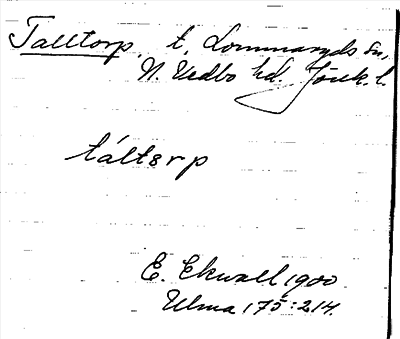 Talltorp t. Lommaryds sn,
N. Vedbo hd. Jönk. l.
táltɵrp
E. Ekwall 1900
Ulma 175:214.